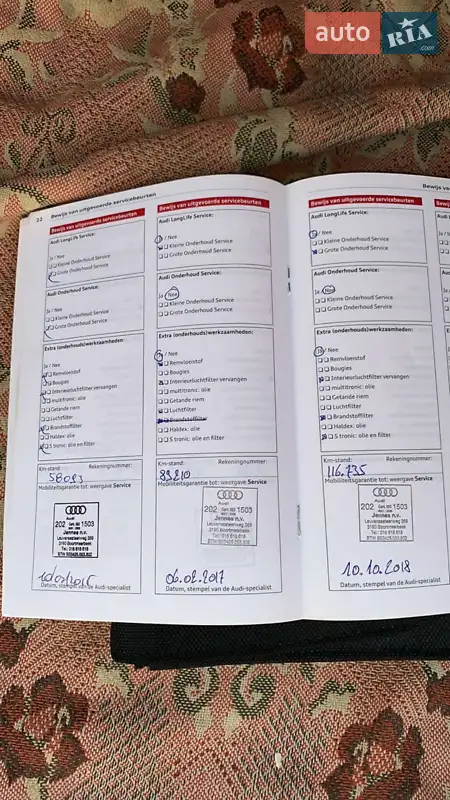 auto RIA.com
22 Bewijs van uitgevoerde servicebeurten
Bewijs van uitgevoerde servicebeurten
Audi LongLife Service:
Ja / Nee
Kleine Onderhoud Service
Grote Onderhoud Service
Audi Onderhoud Service:
Ja / Nee
Kleine Onderhoud Service
Grote Onderhoud Service
Extra (onderhouds)werkzaamheden:
Ja / Nee
Remvloeistof
Bougies
Interieurluchtfilter vervangen
multitronic: olie
Getande riem
Luchtfilter
Brandstoffilter
Haldex: olie
S tronic: olie en filter
Km-stand: Rekeningnummer:
58093
Mobiliteitsgarantie tot: weergave Service
Audi
202 1503
Jennes n.v.
Leuvensesteenweg 369
3190 Boortmeerbeek
Tel.: 016 616 618
Datum, stempel van de Audi-specialist
Bewijs van uitgevoerde servicebeurten
Audi LongLife Service:
Ja / Nee
Kleine Onderhoud Service
Grote Onderhoud Service
Audi Onderhoud Service:
Ja / Nee
Kleine Onderhoud Service
Grote Onderhoud Service
Extra (onderhouds)werkzaamheden:
Ja / Nee
Remvloeistof
Bougies
Interieurluchtfilter vervangen
multitronic: olie
Getande riem
Luchtfilter
Brandstoffilter
Haldex: olie
S tronic: olie en filter
Km-stand: Rekeningnummer:
89210
Mobiliteitsgarantie tot: weergave Service
Audi
202 1503
Jennes n.v.
Leuvensesteenweg 369
3190 Boortmeerbeek
Tel.: 016 616 618
06.02.2017
Datum, stempel van de Audi-specialist
Bewijs va
Bewijs van uitgevoerde servicebeurten
Audi LongLife Service:
Ja / Nee
Kleine Onderhoud Service
Grote Onderhoud Service
Audi Onderhoud Service:
Ja / Nee
Kleine Onderhoud Service
Grote Onderhoud Service
Extra (onderhouds)werkzaamheden:
Ja / Nee
Remvloeistof
Bougies
Interieurluchtfilter vervangen
multitronic: olie
Getande riem
Luchtfilter
Brandstoffilter
Haldex: olie
S tronic: olie en filter
Km-stand: Rekeningnummer:
116.735
Mobiliteitsgarantie tot: weergave Service
Audi
202 1503
Jennes n.v.
Leuvensesteenweg 369
3190 Boortmeerbeek
Tel.: 016 616 618
10.10.2018
Datum, stempel van de Audi-specialist